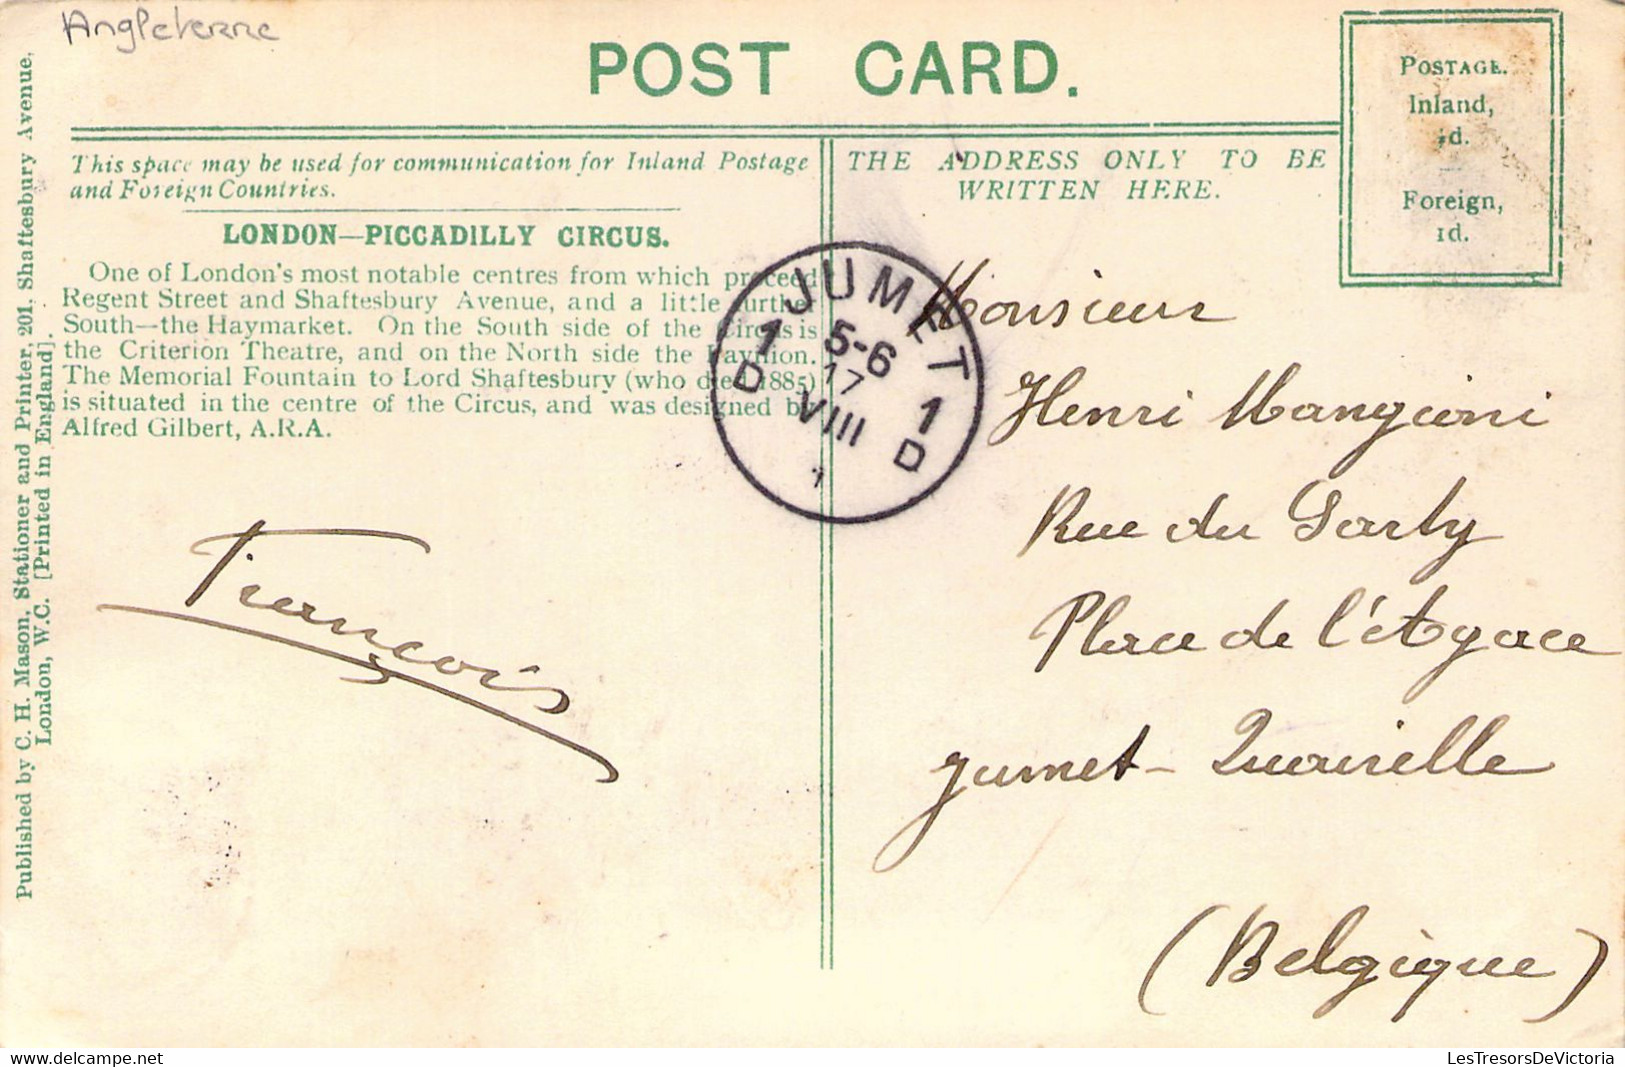 Angleterre
POST CARD.
POSTAGE.
Inland,
½d.
Foreign,
1d.
This space may be used for communication for Inland Postage
and Foreign Countries.
THE ADDRESS ONLY TO BE
WRITTEN HERE.
LONDON—PICCADILLY CIRCUS.
One of London's most notable centres from which proceed
Regent Street and Shaftesbury Avenue, and a little further
South—the Haymarket. On the South side of the Circus is
the Criterion Theatre, and on the North side the Pavilion.
The Memorial Fountain to Lord Shaftesbury (who died 1885)
is situated in the centre of the Circus, and was designed by
Alfred Gilbert, A.R.A.
JUMET
1 5-6
17
D VIII 1
D
François
Monsieur
Henri Mangioni
Rue du
Place de
Jumet-
(Belgique)
Published by C. H. Mason, Stationer and Printer, 201, Shaftesbury Avenue,
London, W.C. [Printed in England].
LesTresorsDeVictoria